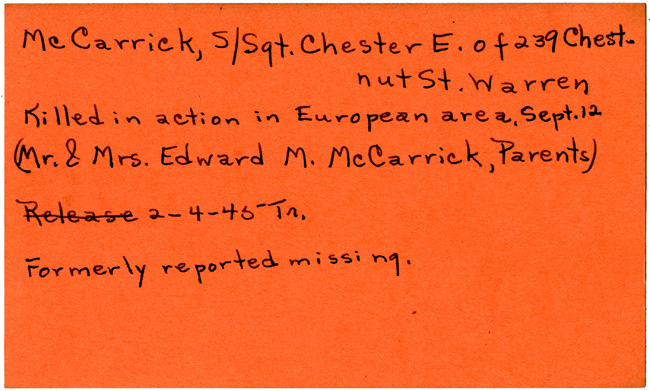 McCarrick, S/Sgt. Chester E. of 239 Chest-
nut St. Warren
Killed in action in European area, Sept. 12
(Mr. & Mrs. Edward M. McCarrick, Parents)
Release 2-4-45 Tr.
Formerly reported missing.